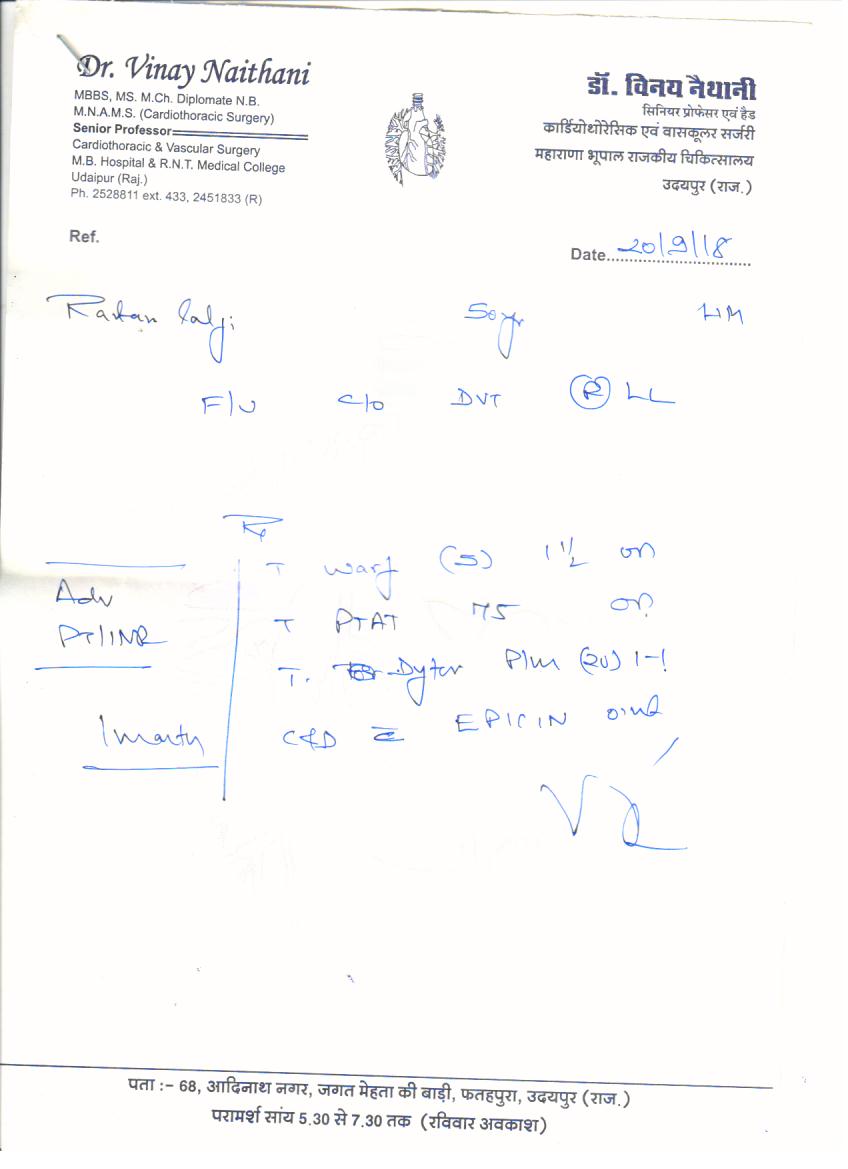 Dr. Vinay Naithani
MBBS, MS. M.Ch. Diplomate N.B.
M.N.A.M.S. (Cardiothoracic Surgery)
Senior Professor
Cardiothoracic & Vascular Surgery
M.B. Hospital & R.N.T. Medical College
Udaipur (Raj.)
Ph. 2528811 ext. 433, 2451833 (R)
डॉ. विनय नैथानी
सिनियर प्रोफेसर एवं हैड
कार्डियोथोरेसिक एवं वासकूलर सर्जरी
महाराणा भूपाल राजकीय चिकित्सालय
उदयपुर (राज.)
Ref.
Date 20/9/18
Ratan lalji 50 yr
F/U C/O DVT R LL
Rx
T Warf (5) 1 1/2 on
Adv
PT/INR
T PTAT 75 on
T. Dytor Plus (20) 1-1
1 month
C&D c EPICIN oint
पता :- 68, आदिनाथ नगर, जगत मेहता की बाड़ी, फतहपुरा, उदयपुर (राज.)
परामर्श सांय 5.30 से 7.30 तक (रविवार अवकाश)